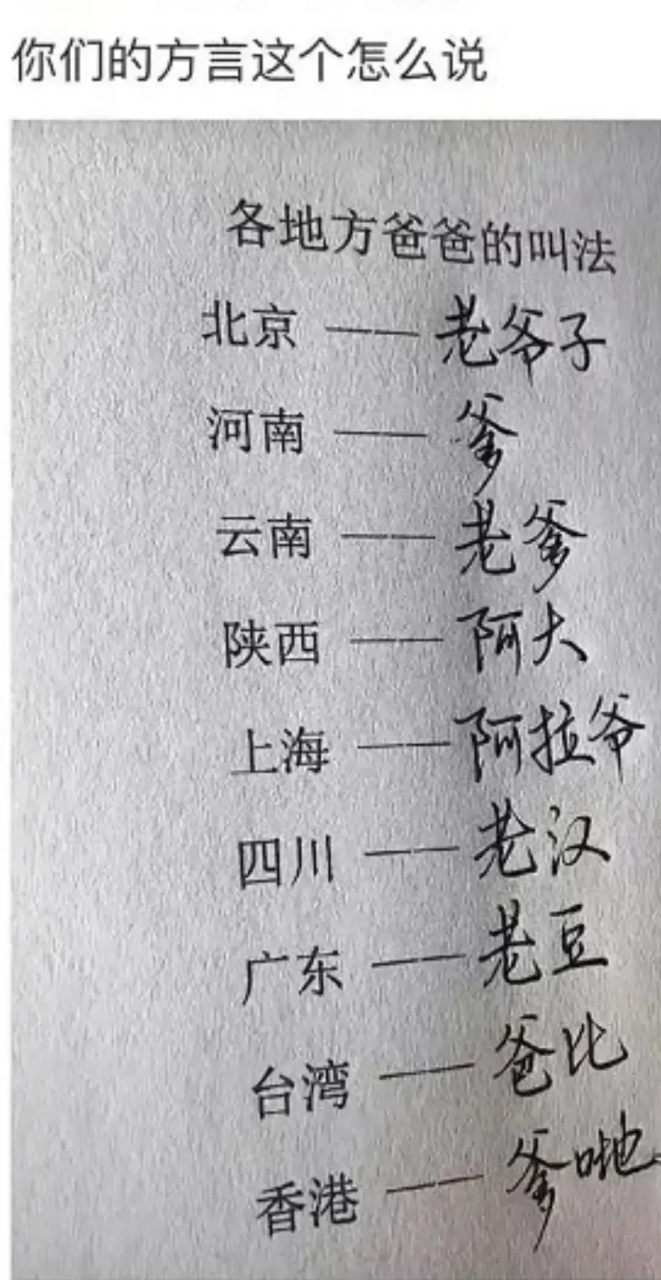 你们的方言这个怎么说
各地方爸爸的叫法
北京 —— 老爷子
河南 —— 爹
云南 —— 老爹
陕西 —— 阿大
上海 —— 阿拉爷
四川 —— 老汉
广东 —— 老豆
台湾 —— 爸比
香港 —— 爹哋